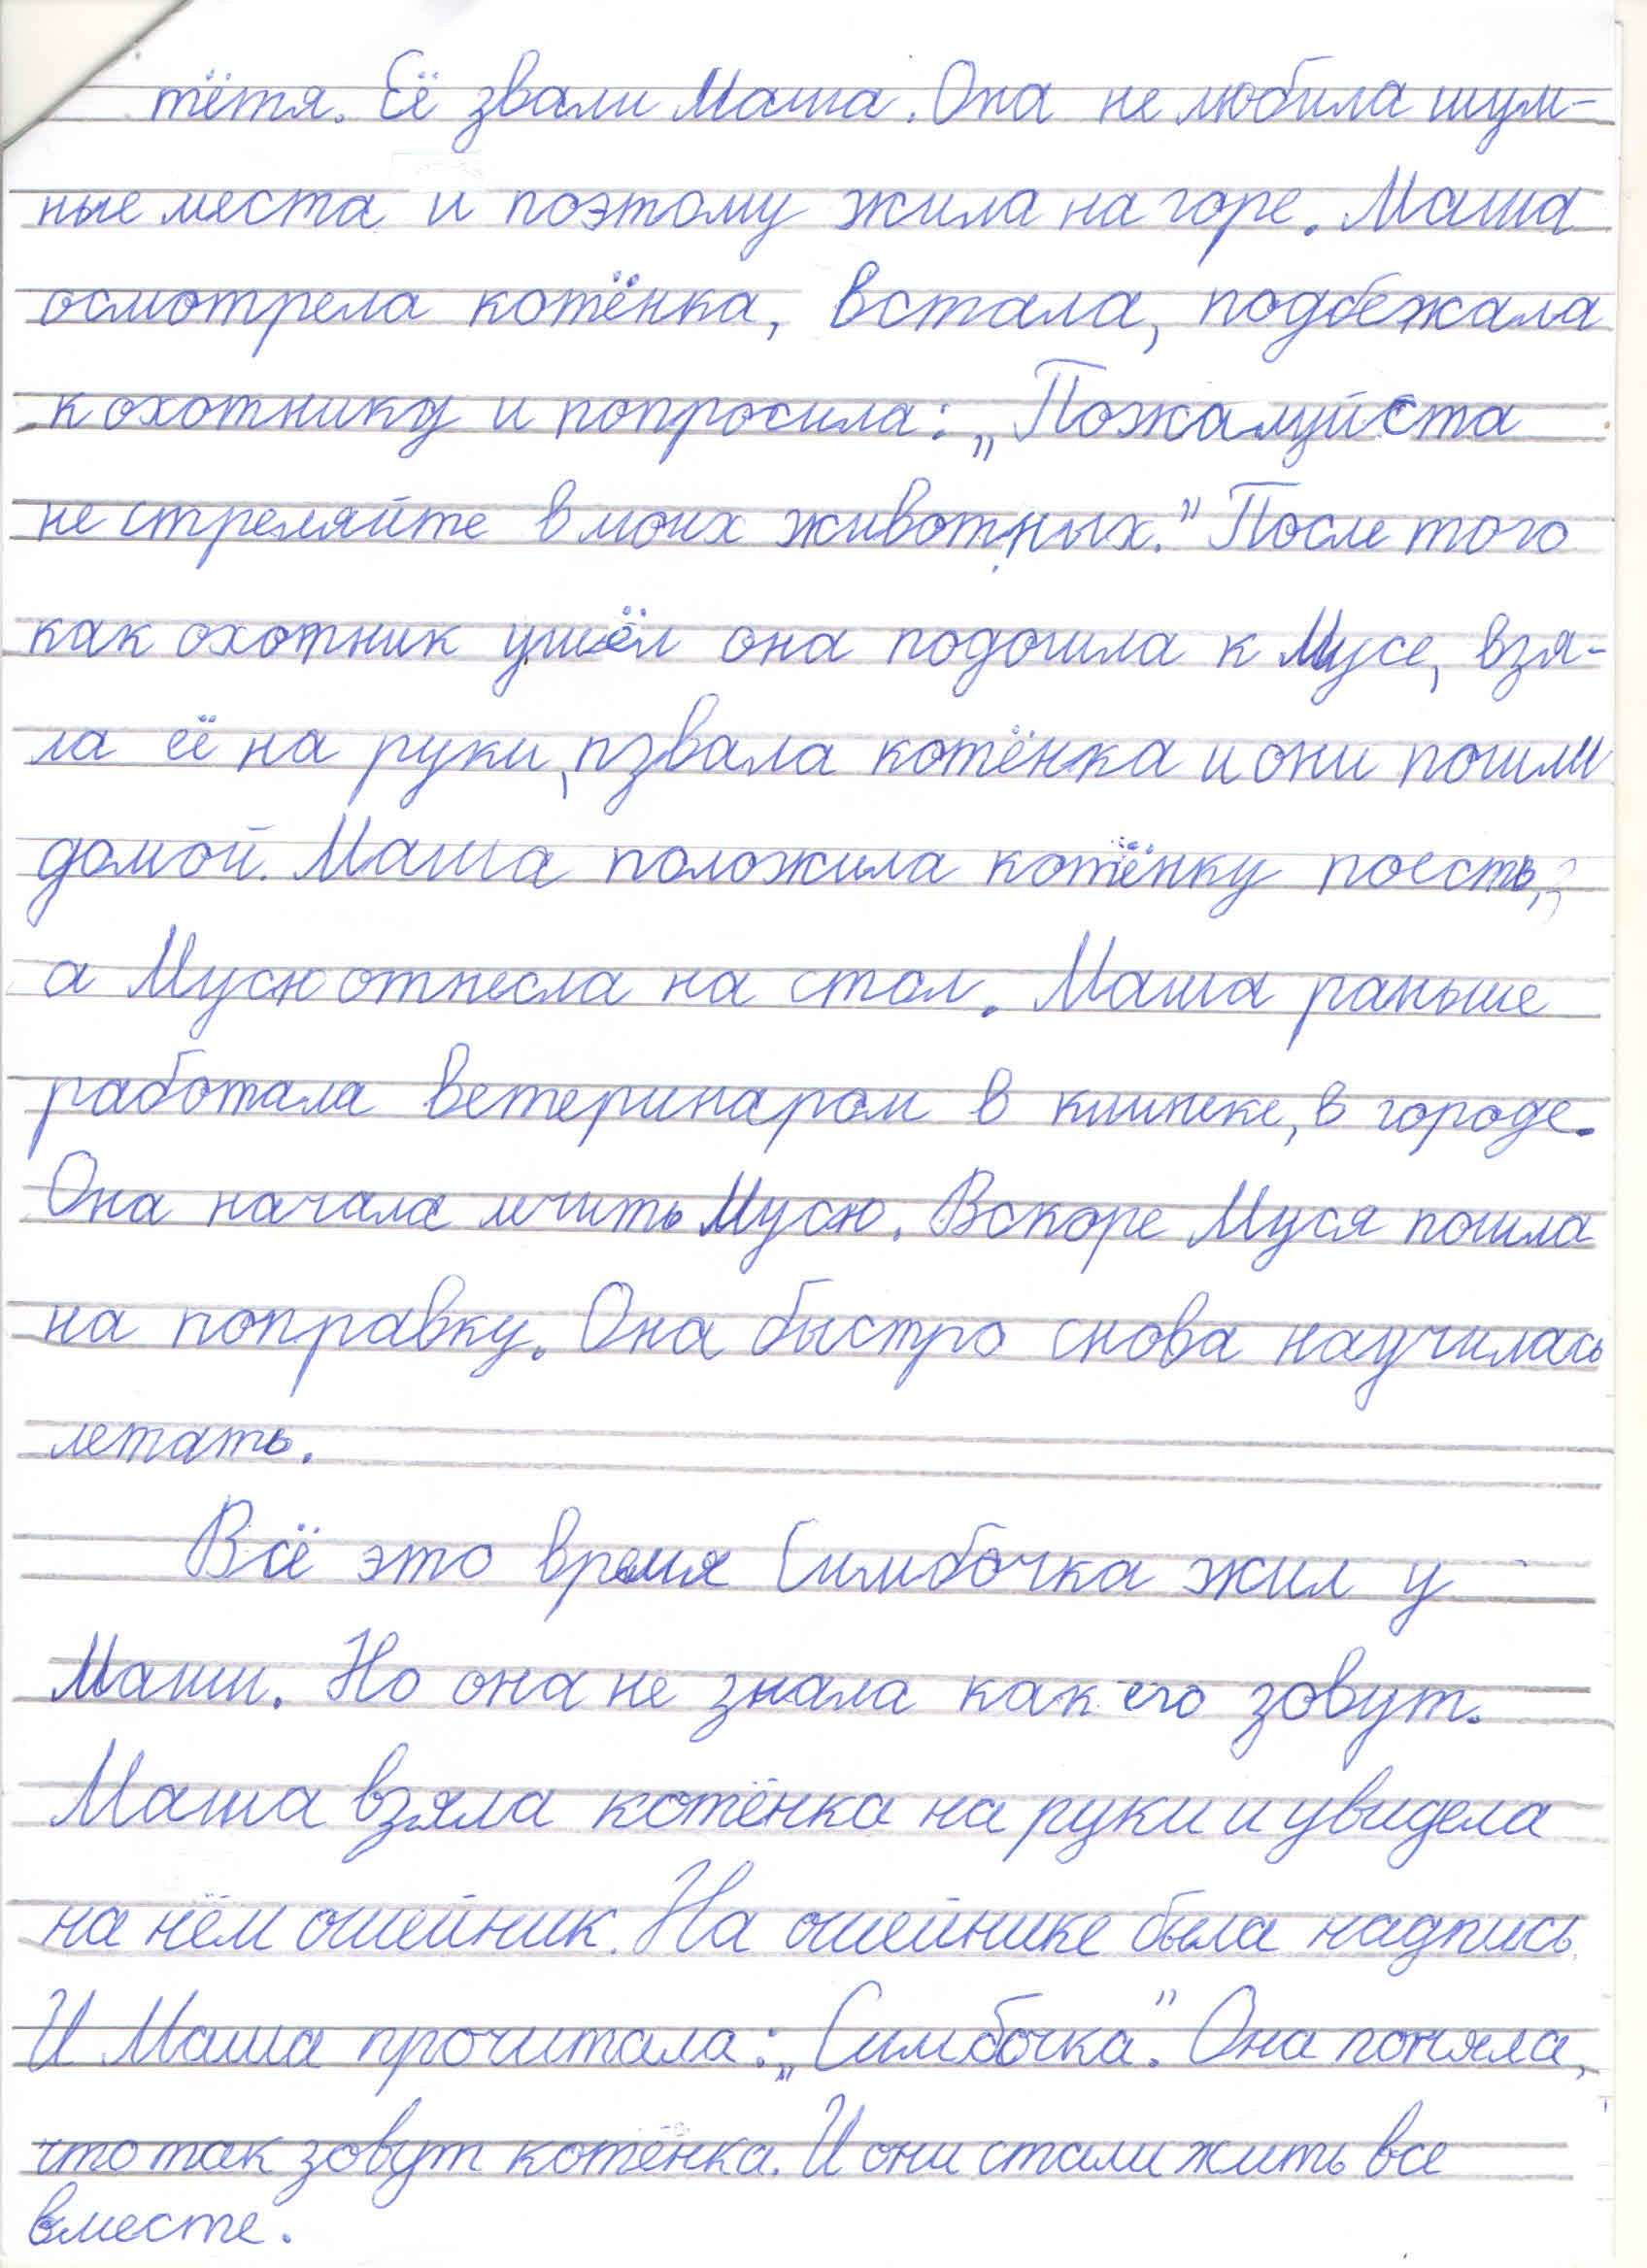 тётя. Её звали Маша. Она не любила шум-
ные места и поэтому жила на горе. Маша
осмотрела котёнка, встала, подбежала
к охотнику и попросила: „Пожалуйста
не стреляйте в моих животных.” После того
как охотник ушёл она подошла к Мусе, взя-
ла её на руки, пзвала котёнка и они пошли
домой. Маша положила котёнку поесть,
а Мусю отнесла на стол. Маша раньше
работала ветеринаром в клинеке, в городе.
Она начала лечить Мусю. Вскоре Муся пошла
на поправку. Она быстро снова научилась
летать.
Всё это время Симбочка жил у
Маши. Но она не знала как его зовут.
Маша взяла котёнка на руки и увидела
на нём ошейник. На ошейнике была надпись.
И Маша прочитала: „Симбочка”. Она поняла,
что так зовут котёнка. И они стали жить все
вместе.